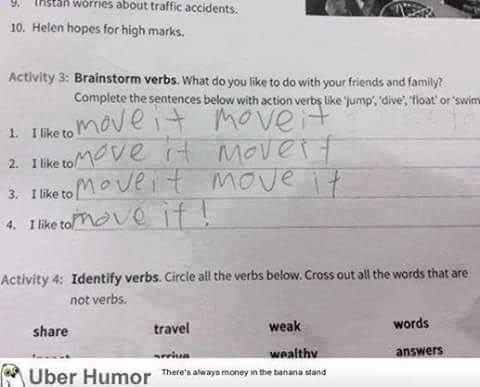 9. Tristan worries about traffic accidents.
10. Helen hopes for high marks.
Activity 3: Brainstorm verbs. What do you like to do with your friends and family?
Complete the sentences below with action verbs like 'jump', 'dive', 'float' or 'swim
1. I like to move it move it
2. I like to move it move it
3. I like to move it move it
4. I like to move it!
Activity 4: Identify verbs. Circle all the verbs below. Cross out all the words that are
not verbs.
share travel weak words
arrive wealthy answers
Uber Humor There's always money in the banana stand